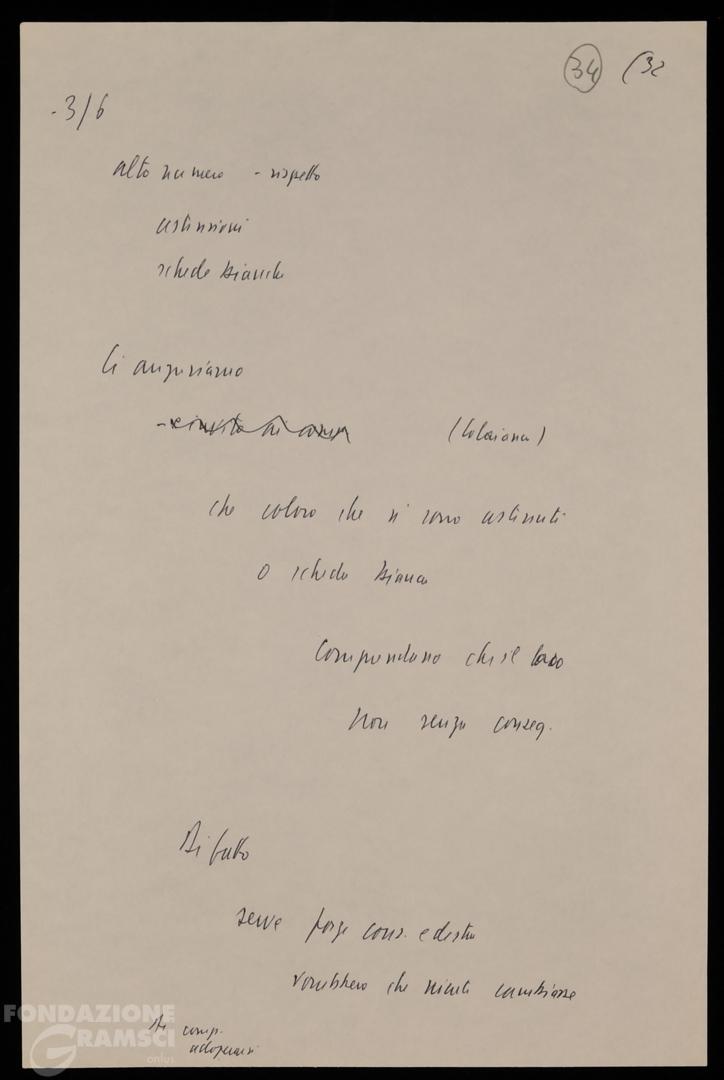 34 (32
- 3/6
alto numero - rispetto
astensioni
schede bianche
Ci auguriamo
(Colaianni)
che coloro che si sono astenuti
o scheda bianca
Comprendano che il loro
non senza conseg.
Di fatto
serve forze cons. e destra
vorrebbero che niente cambiasse
comp.
adoperarsi
FONDAZIONE
GRAMSCI
onlus